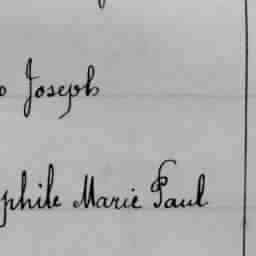 o Joseph
phile Marie Paul